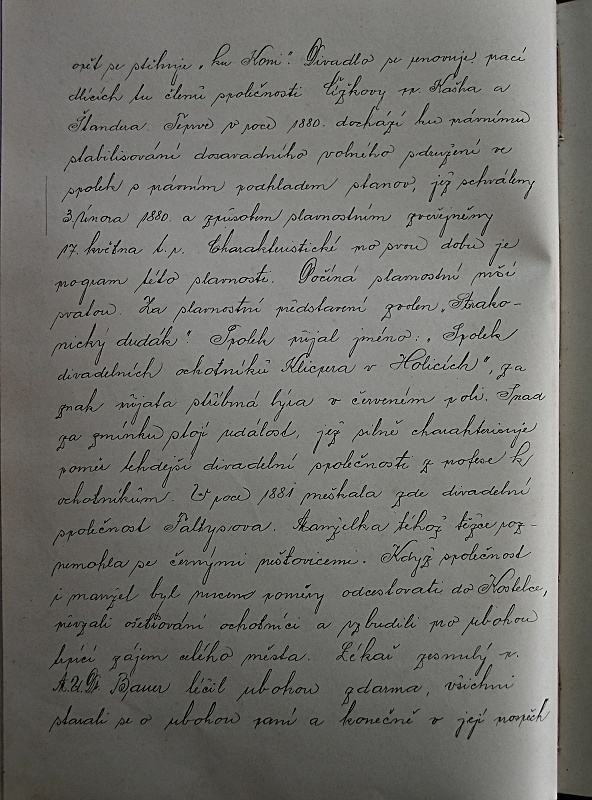 opět se stěhuje „ku Koni“. Divadlo se renovuje prací
dlících tu členů společnosti Čížkovy pp. Kaška a
Štandera. Teprve v roce 1880. dochází ku právnímu
stabilisování dosavadního volného sdružení ve
spolek s právním podkladem stanov, jež schváleny
3. února 1880. a způsobem slavnostním zveřejněny
17. května t. r. Charakteristické pro svou dobu je
program této slavnosti. Počíná slavnostní mší
svatou. Za slavnostní představení zvolen „Strako-
nický dudák“. Spolek přijal jméno: „Spolek
divadelních ochotníků Klicpera v Holicích“, za
znak přijata stříbrná lýra v červeném poli. Snad
za zmínku stojí událost, jež silně charakterisuje
poměr tehdejší divadelní společnosti z profese k
ochotníkům. V roce 1881 meškala zde divadelní
společnost Faltysova. Manželka téhož těžce roz-
nemohla se černými neštovicemi. Když společnost
i manžel byl nucen poměry odcestovati do Kostelce,
převzali ošetřování ochotníci a vzbudili pro ubohou
trpící zájem celého města. Lékař zesnulý p.
M.U.Dr Bauer léčil ubohou zdarma, všichni
starali se o ubohou paní a konečně v její prospěch